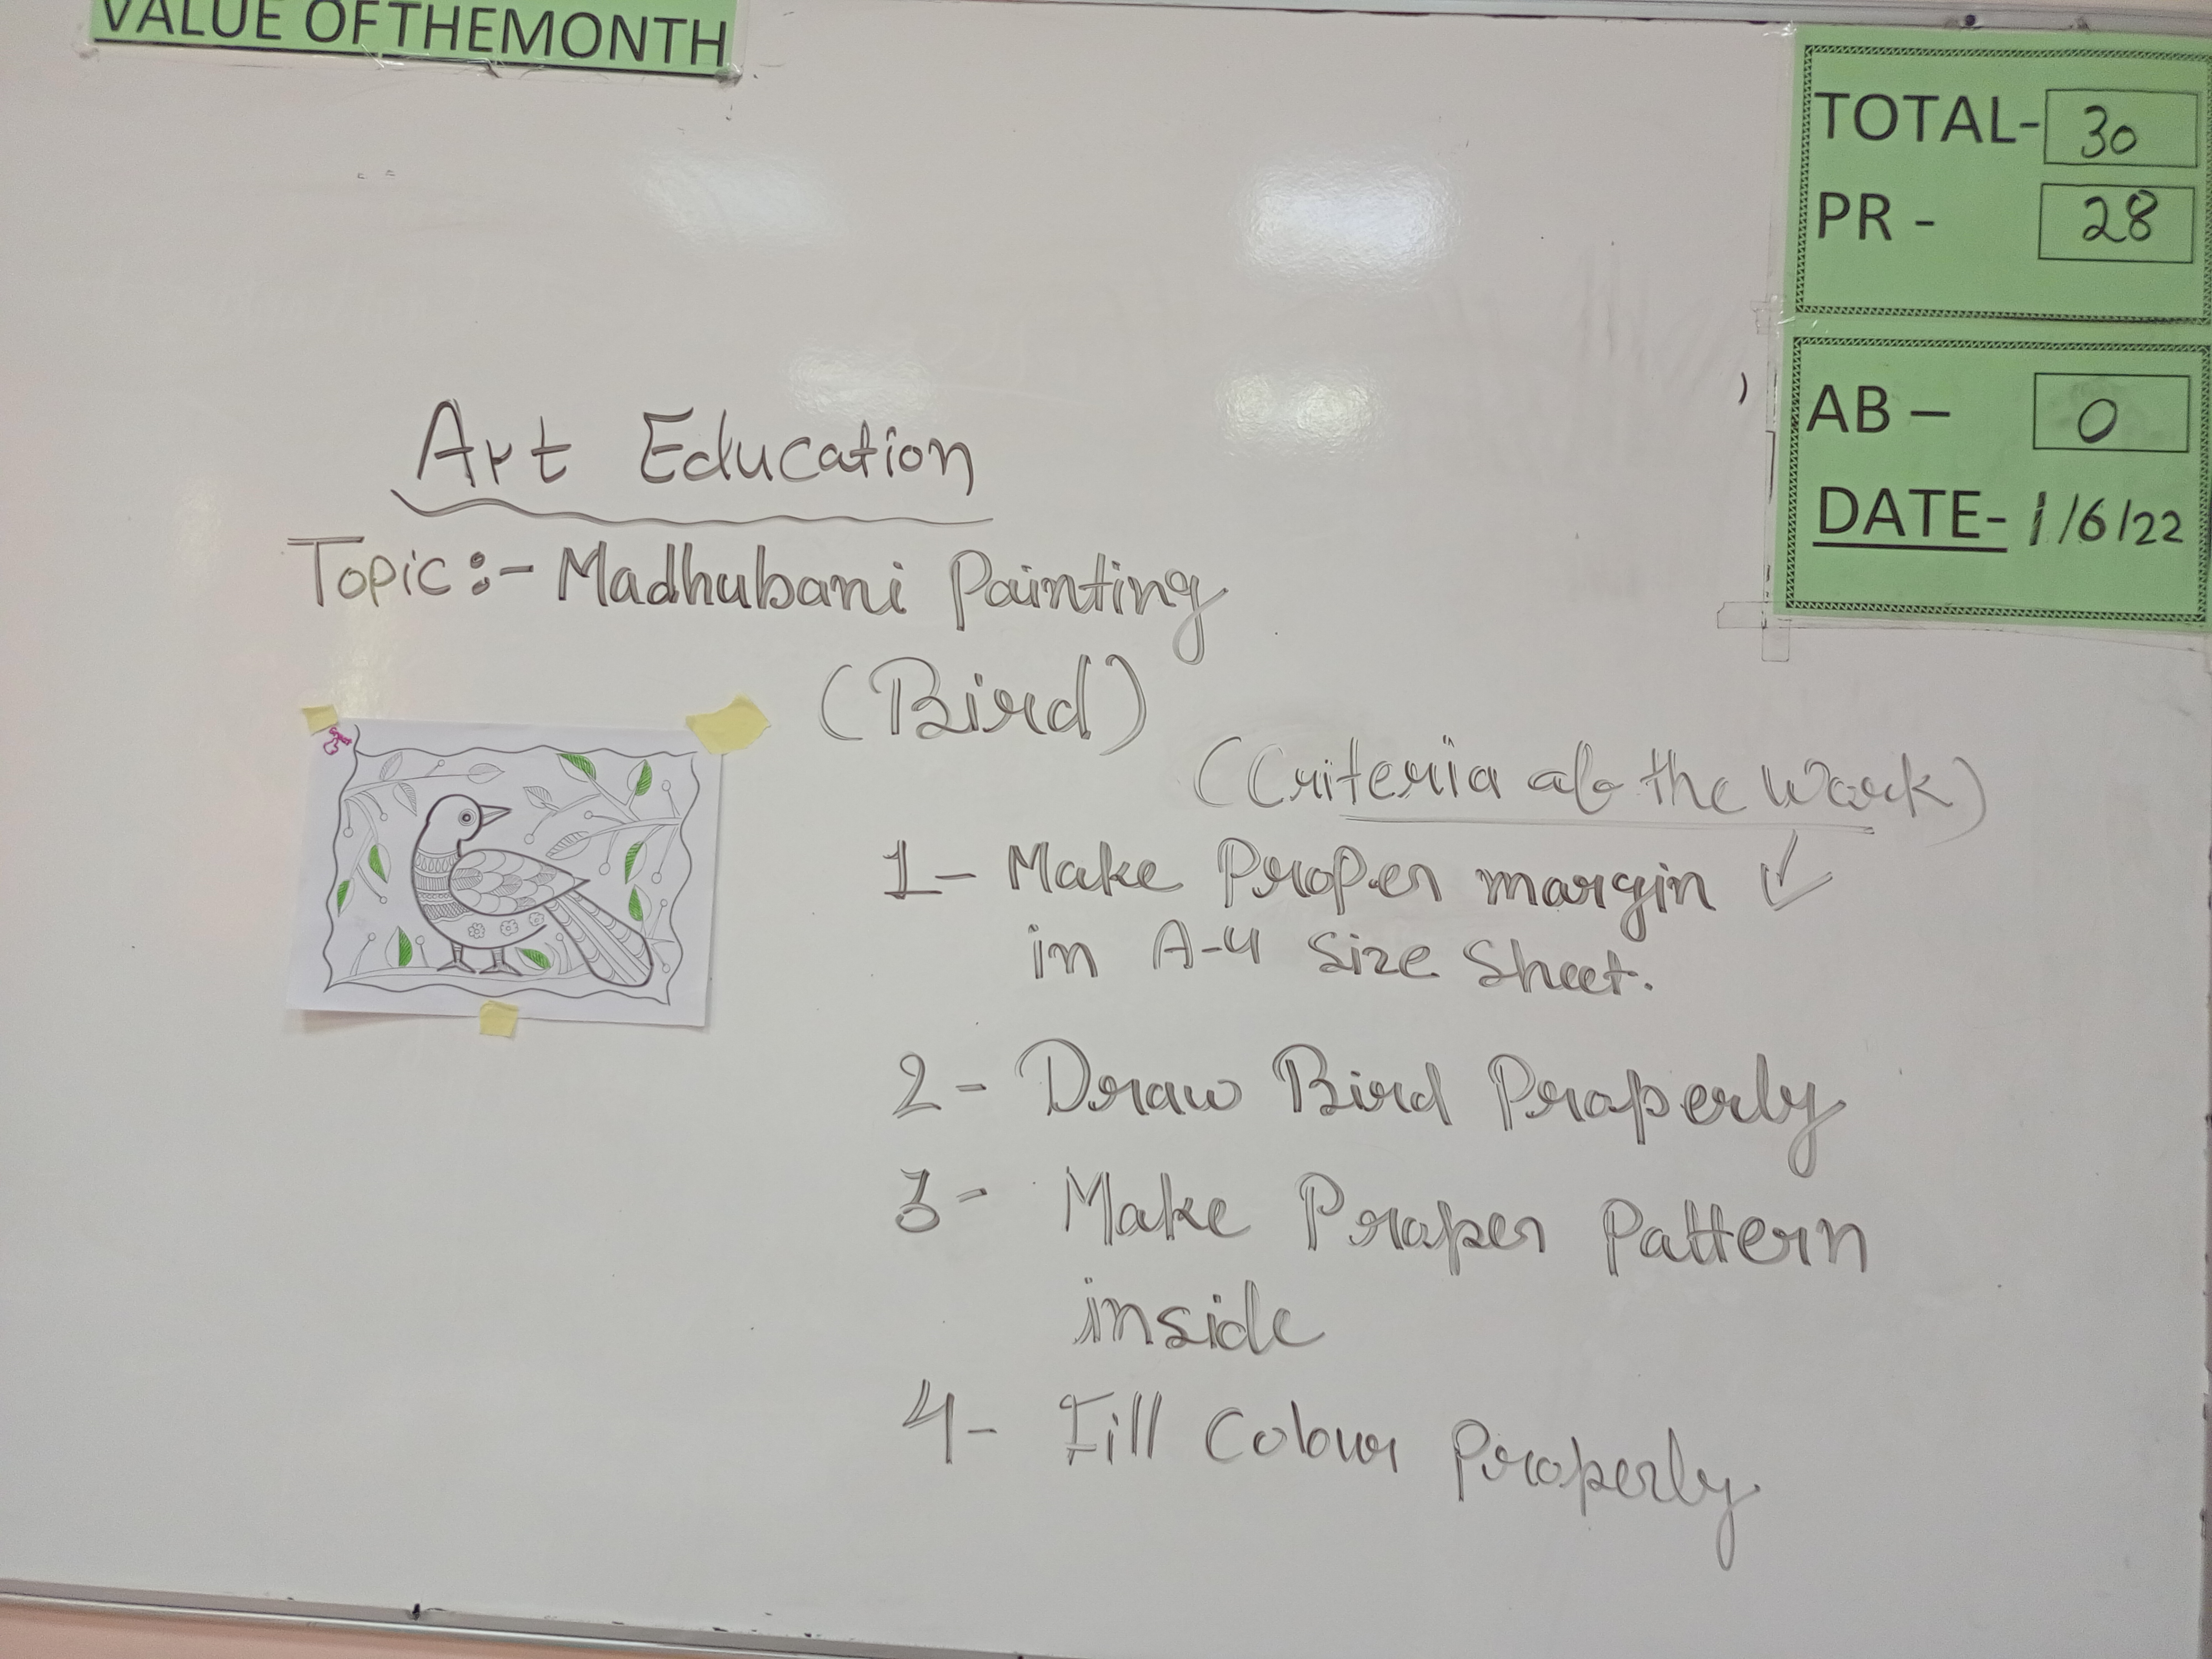 VALUE OF THE MONTH
TOTAL- 30
PR - 28
AB – 0
DATE- 1/6/22
Art Education
Topic:- Madhubani Painting
(Bird)
(Criteria of the Work)
1- Make Proper margin ✓
in A-4 Size Sheet.
2- Draw Bird Properly
3- Make Proper Pattern
inside
4- Fill Colour Properly